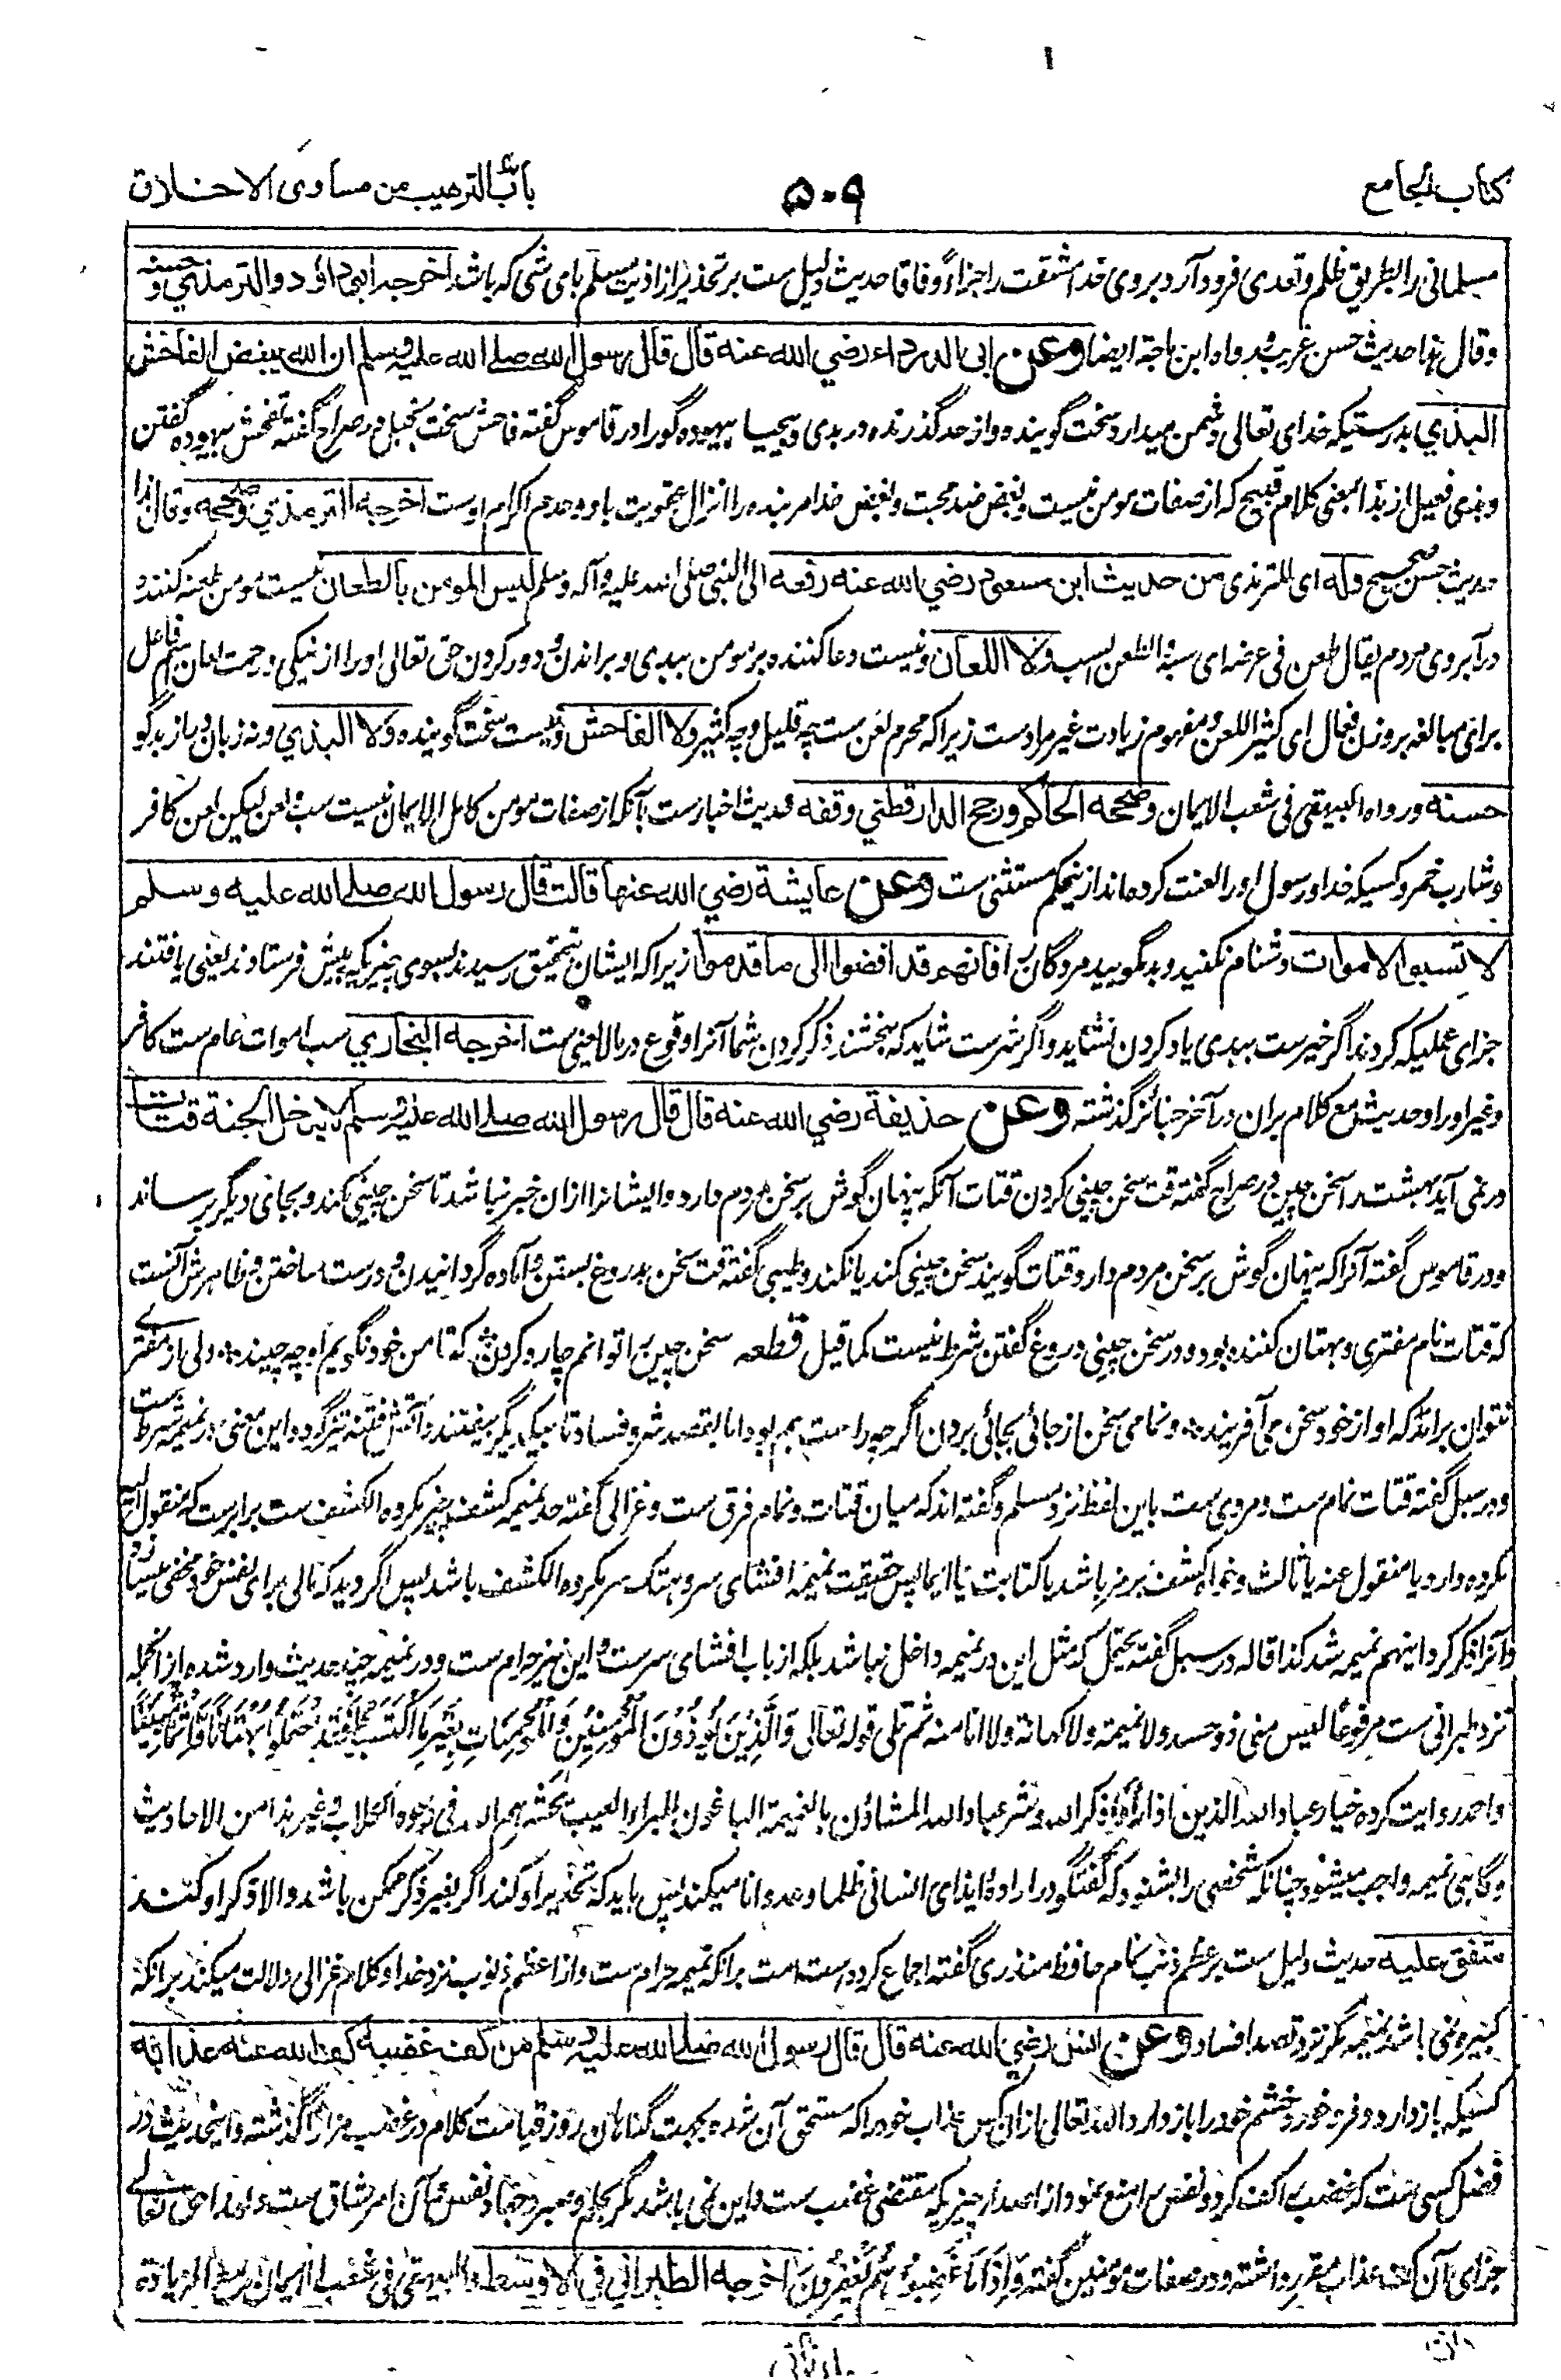 کتاب الجامع ۵۰۹ باب الترهیب من مساوی الاخلاق
مسلمانی را بطریق ظلم و تعدی فرود آرد بروی خدا مشقت را جزاءً وفاقا حدیث دلیل ست بر تحذیر از اذیت مسلم بای شی که باشد اخرجه ابی داؤد والترمذي وحسنه
وقال هذا حدیث حسن غریب ورواه ابن ماجة ایضا وعن ابی الدرداء رضي الله عنه قال قال رسول الله صلے الله علیه وسلم ان الله یبغض الفاحش
البذي بدرستیکه خدای تعالی دشمن میدارد سخت گوینده و از حد گذرنده در بدی و بیحیا بیهوده گو را در قاموس گفته فاحش سخت بخیل و در صراح گفته تفحش بیهوده گفتن
وبذی فعیل از بذا بمعنی کلام قبیح که از صفات مومن نیست وبغض ضد محبت وبغض خدا مر بنده را انزال عقوبت باو و عدم اکرام اوست اخرجه الترمذي وصححه وقال هذا
حدیث حسن صحیح وله ای للترمذی من حدیث ابن مسعود رضي الله عنه رفعه الی النبی صلی الله علیه وآله وسلم لیس المومن بالطعان نیست مومن طعنه کننده
در آبروی مردم یقال طعن فی عرضه ای سبه والطعن السب ولا اللعان ونیست دعا کننده بر مومن ببدی و براندن و دور کردن حق تعالی او را از نیکی و رحمت لعان اسم فاعل
برای مبالغه بر وزن فعال ای کثیر اللعن ومفهوم زیادت غیر مرادست زیرا که محرم لعن ست چه قلیل و چه کثیر ولا الفاحش ونیست سخت گوینده ولا البذي ونه زبان دراز بدگو
حسنه ورواه البیهقی فی شعب الایمان وصححه الحاکم ورجح الدارقطني وقفه حدیث اخبارست بآنکه از صفات مومن کامل الایمان نیست سب ولعن لیکن لعن کافر
و شارب خمر و کسیکه خدا و رسول او را لعنت کرده‌اند ازینحکم مستثنی ست وعن عایشة رضي الله عنها قالت قال رسول الله صلے الله علیه وسلم
لا تسبوا الاموات دشنام نکنید و بدگویید مردگان را فانهم قد افضوا الی ما قدموا زیرا که ایشان بتحقیق رسیدند بسوی چیزیکه پیش فرستادند یعنی یافتند
جزای عملیکه کردند اگر خیرست ببدی یاد کردن نشاید و اگر شرست شاید که ببخشند ذکر کردن شما آنرا وقوع در مالایعنی ست اخرجه البخاري سب اموات عام ست کافر
وغیر او را و حدیث مع کلام بران در آخر جنائز گذشته وعن حذیفة رضي الله عنه قال قال رسول الله صلے الله علیه وسلم لا یدخل الجنة قتات
در نمی آید بهشت را سخن چین و در صراح گفته قت سخن چینی کردن قتات آنکه پنهان گوش بر سخن مردم دارد و ایشانرا ازان خبر نباشد تا سخن چینی کند و بجای دیگر برساند
و در قاموس گفته آنرا که پنهان گوش بر سخن مردم دارد قتات گویند سخن چینی کند یا نکند و طیبی گفته قت سخن بدروغ بستن و آماده گردانیدن و درست ساختن و ظاهرش آنست
که قتات نام مفتری و بهتان کننده بود و در سخن چینی دروغ گفتن شرط نیست کما قیل قطعه سخن چین را توانم چاره کردن که تا من خود نگویم او چه چیند ولی از مفترے
نتوان براند که او از خود سخن می آفریند و نمامی سخن از جائی بجائی بردن اگر چه راست هم بود اما بقصد شر و فساد تا بیکدیگر بیفتند و آتش فتنه تیز گردد و این معنی در نمیمه شرط ست
و در سبل گفته قتات نمام ست و مروی ست باین لفظ نزد مسلم و گفته اند که میان قتات و نمام فرق ست و غزالی گفته حد نمیمه کشف چیز مکروه الکشف ست برابرست که منقول الیه
مکروه دارد یا منقول عنه یا ثالث و خواه کشف برمز باشد یا کتابت یا ایما پس حقیقت نمیمه افشای سر و هتک ستر مکروه الکشف باشد پس اگر دید که مالی برای نفس خود مخفی میسازد
و آنرا ذکر کرد اینهم نمیمه شد کذا قاله در سبل گفته یحتمل که مثل این در نمیمه داخل نباشد بلکه از باب افشای سرست و این نیز حرام ست و در نمیمه چند حدیث وارد شده از انجمله
نزد طبرانی ست مرفوعا لیس منی ذو حسد ولا نمیمة ولا کهانة ولا انا منه ثم تلی قوله تعالی وَالَّذِینَ یُؤْذُونَ الْمُؤْمِنِینَ وَالْمُؤْمِنَاتِ بِغَیْرِ مَا اکْتَسَبُوا فَقَدِ احْتَمَلُوا بُهْتَانًا وَإِثْمًا مُبِینًا
و احمد روایت کرده خیار عباد الله الذین اذا رأوا ذکر الله وشر عباد الله المشاؤن بالنمیمة الباغون للبراء العیب یحشرهم الله فی وجوه الکلاب وغیر هذا من الاحادیث
و گاهی نمیمه واجب میشود چنانکه شخصی را بشنود که گفتگو در اراده ایذای انسانی ظلما وعدوانا میکند پس باید که تحذیر او کند اگر بغیر ذکر ممکن باشد والا ذکر او کند
متفق علیه حدیث دلیل ست بر عظم ذنب نمام حافظ منذری گفته اجماع کرده است امت برانکه نمیمه حرام ست و از اعظم ذنوب نزد خدا و کلام غزالی دلالت میکند برانکه
کبیره نمی باشد نمیمه مگر نزد قصد افساد وعن انس رضي الله عنه قال قال رسول الله صلے الله علیه وسلم من کف غضبه کف الله عنه عذابه
کسیکه باز دارد و فرو خورد خشم خود را باز دارد الله تعالی ازان کس عذاب خود را که مستحق آن شده بجهت گناهان روز قیامت کلام در غضب مرارا گذشته و اینحدیث در
فضل کسی ست که غضب را کف کرد و نفس را منع نمود از اصدار چیزیکه مقتضی غضب ست و این نمی باشد مگر بحلم و صبر و جهاد نفس و آن امر شاق ست و لهذا حق تعالے
جزای آن کف عذاب مقرر داشته و در صفات مومنین گفته وَإِذَا مَا غَضِبُوا هُمْ یَغْفِرُونَ اخرجه الطبراني في الاوسط والبیهقی فی شعب الایمان